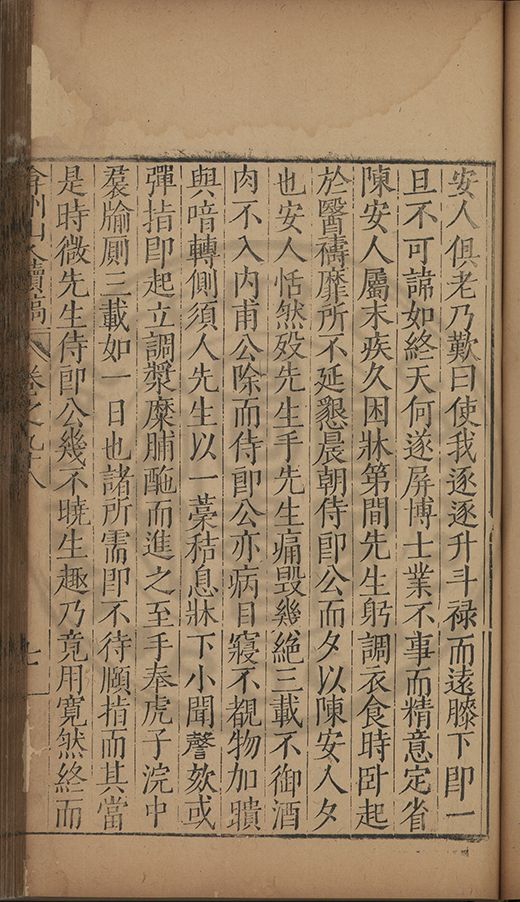 安人俱老乃歎曰使我逐逐升斗祿而遠膝下卽一
旦不可諱如終天何遂屏博士業不事而精意定省
陳安人屬末疾久困牀第間先生躬調衣食時臥起
於醫禱靡所不延懇晨朝侍卽公而夕以陳安人夕
也安人恬然歿先生手先生痛毀幾絕三載不御酒
肉不入內甫公除而侍卽公亦病目寢不覩物加聵
與喑轉側須人先生以一藁秸息牀下小聞謦欬或
彈指卽起立調漿糜脯酏而進之至手奉虎子浣中
裙牏厠三載如一日也諸所需卽不待頤指而其當
是時微先生侍卽公幾不曉生趣乃竟用寬然終而
弇州山人續稿 卷之九十八 七